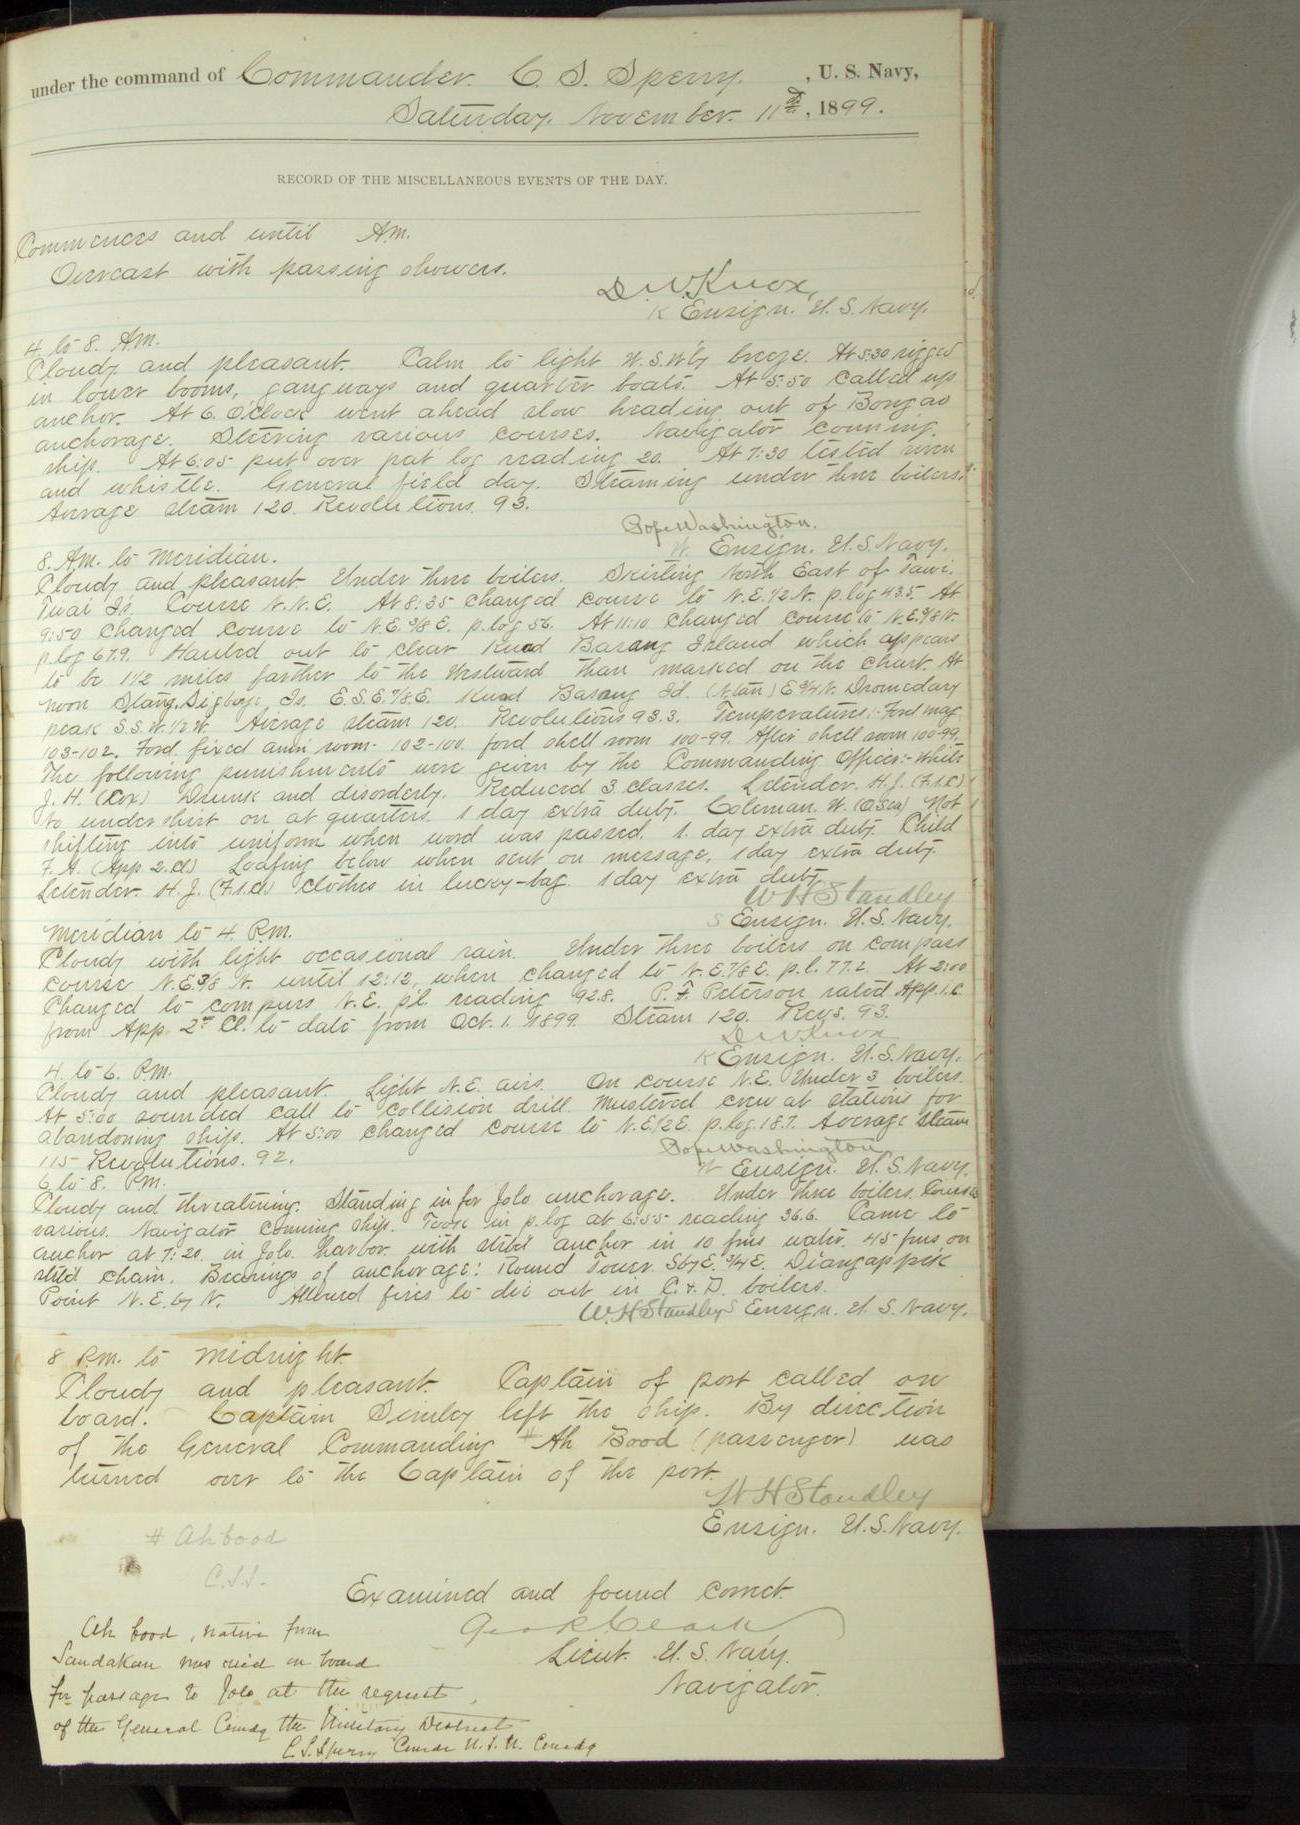 under the command of Commander. C. S. Sperry. , U. S. Navy,
Saturday. November. 11th, 1899.
RECORD OF THE MISCELLANEOUS EVENTS OF THE DAY.
Commences and until A.m.
Overcast with passing showers.
D. W. Knox,
K Ensign. U. S. Navy.
4. to 8. A.m.
Cloudy and pleasant. Calm to light W.S.W'ly breeze. At 5:30 rigged
in lower booms, gangways and quarter boats. At 5:50 called up
anchor. At 6. O'clock went ahead slow heading out of Bongao
anchorage. Steering various courses. Navigator conning.
ship. At 6:05 put over pat log reading 20. At 7:30 tested siren
and whistle. General field day. Steaming under three boilers.
Average steam 120. Revolutions. 93.
Pope Washington.
W. Ensign. U.S. Navy.
8. A.m. to Meridian.
Cloudy and pleasant. Under three boilers. Skirting North East of Tawi.
Twai Is. Course N.N.E. At 8:35 changed course to N.E.1/2 N. p.log 43.5. At
9:50 changed course to N.E.3/8 E. p.log 56. At 11:10 changed course to N.E.3/8 N.
p.log 67.9. Hauled out to clear Kuad Basang Island which appears
to be 1 1/2 miles farther to the Westward than marked on the chart. At
noon Is. E.S.E.7/8.E. Kuad Basang Id. E 3/4 N. Dromedary
peak S.S.W.1/2 W. Average steam 120. Revolutions 93.3. Temperatures:- Ford mag
103-102. Ford. fixed amn room- 102-100. ford shell room 100-99. After shell room 100-99.
The following punishments were given by the Commanding Officer:- White
J. H. (Cox) Drunk and disorderly. Reduced 3 classes. Letender. H. J. (F.1.C.)
No undershirt on at quarters. 1 day extra duty. Coleman. W. (O.Sea) Not
shifting into uniform when word was passed. 1. day extra duty. Child
F. A. (App. 2.Cl.) Loafing below when sent on message, 1 day extra duty.
Letender. H. J. (F.1.Cl.) Clothes in lucky-bag. 1 day extra duty.
W H Standley
S Ensign. U.S. Navy.
Meridian to 4 P.m.
Cloudy with light occasional rain. Under three boilers on compass
course N.E.3/8 N. until 12:12, when changed to N.E.7/8 E. p.l. 77.2. At 2:00
Changed to compass N.E. p.l. reading 92.8. P. F. Peterson rated App.1.c.
from App 2d Cl. to date from Oct. 1. 1899. Steam 120. Revs. 93.
D W Knox
K Ensign. U.S. Navy.
4. to 6. P.m.
Cloudy and pleasant. Light N.E. airs. On course N.E. Under 3 boilers.
At 5:00 sounded call to collision drill. Mustered crew at stations for
abandoning ship. At 5:00 changed course to N.E.1/2 E. p.log. 18.7. Average steam
115 Revolutions. 92.
Pope Washington
W Ensign. U. S. Navy.
6 to 8. P.m.
Cloudy and threatening. Standing in for Jolo anchorage. Under three boilers. Courses
various. Navigator conning ship. Took in p.log at 6:55 reading 36.6. Came to
anchor at 7:20. in Jolo Harbor with stb'd anchor in 10 fms water. 45 fms on
stb'd chain. Bearings of anchorage: Round Tower. S by E.3/4 E. Diangappik
Point N.E. by N. Allowed fires to die out in C. & D. boilers.
W. H Standley S Ensign. U. S. Navy.
8 P.m. to Midnight.
Cloudy and pleasant. Captain of port called on
board. Captain left the ship. By direction
of the General Commanding # Ah Bood (passenger) was
turned over to the Captain of the port.
W H Standley
Ensign. U.S. Navy.
# Ah bood
C.S.S.
Examined and found correct.
Geo R Clark
Lieut. U. S. Navy.
Navigator.
Ah bood, native from
Sandakan was rec'd on board
for passage to Jolo at the request
of the General Comdg the Military District
C. S. Sperry Comdr U. S. N. Comdg